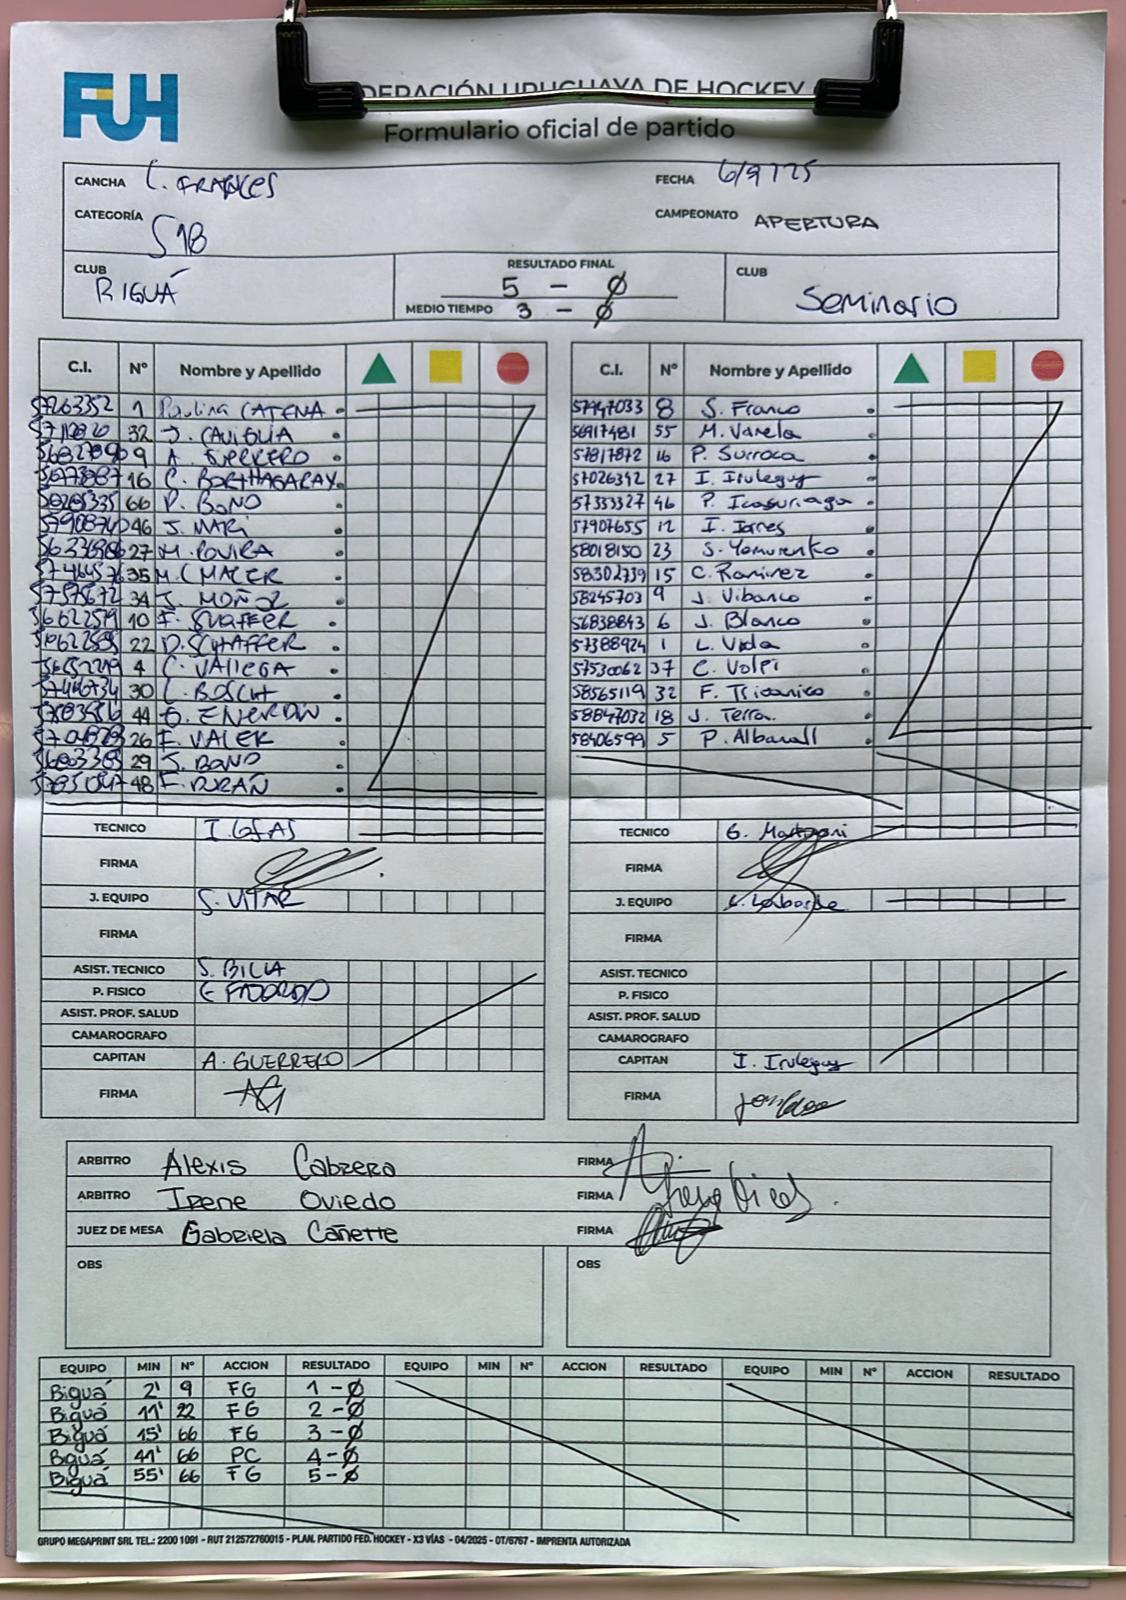 FUH
FEDERACIÓN URUGUAYA DE HOCKEY
Formulario oficial de partido
CANCHA C. FRANCES FECHA 6/9/25
CATEGORÍA S18 CAMPEONATO APERTURA
CLUB BIGUÁ RESULTADO FINAL 5 - 0 CLUB Seminario
MEDIO TIEMPO 3 - 0
C.I. Nº Nombre y Apellido
57263352 1 Paulina CATENA
32 J. CAVIGLIA
9 A. GUERRERO
16 C. BORTHAGARAY
66 P. BONO
46 J. MARI
27 M. ROVIRA
35 M.C MACER
34 J. MUÑOZ
10 F. SHAFFER
22 D. SCHAFFER
4 C. VALLEGA
30 L. BOSCH
44
26 F. VALER
29 J. BONO
48 F. DURÁN
TECNICO
FIRMA
J. EQUIPO S. VITAR
FIRMA
ASIST. TECNICO S. BILLA
P. FISICO
ASIST. PROF. SALUD
CAMAROGRAFO
CAPITAN A. GUERRERO
FIRMA AG
C.I. Nº Nombre y Apellido
57747033 8 S. Franco
56917481 55 M. Varela
57817872 16 P. Surroca
57026342 27 I. Irulegуy
57333327 46 P. Icasuriaga
57907655 12 I. Torres
58018150 23 S. Yamurenko
58302739 15 C. Ramirez
58245703 9 J. Vibanco
56838843 6 J. Blanco
57388924 1 L. Vida
57530062 37 C. Volpi
58565119 32 F. Tricanico
58847032 18 J. Terra.
58406599 5 P. Albanell
TECNICO G.
FIRMA
J. EQUIPO Laborde
FIRMA
ASIST. TECNICO
P. FISICO
ASIST. PROF. SALUD
CAMAROGRAFO
CAPITAN I. Iruleguy
FIRMA
ARBITRO Alexis Cabrera FIRMA
ARBITRO Irene Oviedo FIRMA
JUEZ DE MESA Gabriela Cañette FIRMA
OBS OBS
EQUIPO MIN Nº ACCION RESULTADO EQUIPO MIN Nº ACCION RESULTADO EQUIPO MIN Nº ACCION RESULTADO
Biguá 2' 9 FG 1 - 0
Biguá 11' 22 FG 2 - 0
Biguá 15' 66 FG 3 - 0
Biguá 41' 66 PC 4 - 0
Biguá 55' 66 FG 5 - 0
GRUPO MEGAPRINT SRL TEL.: 2200 1091 - RUT 212572760015 - PLAN. PARTIDO FED. HOCKEY - X3 VÍAS - 04/2025 - OT/6767 - IMPRENTA AUTORIZADA